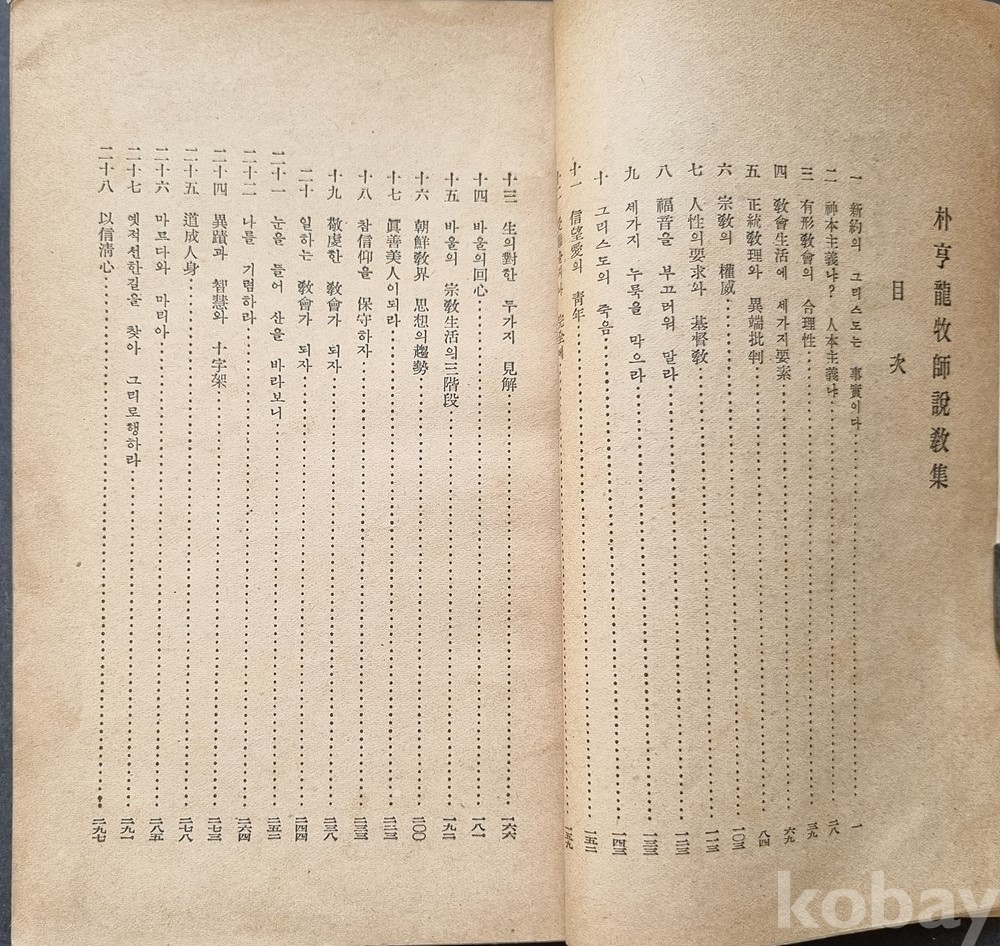 朴亨龍牧師說敎集
目次
一 新約의 그리스도는 事實이다 一
二 神本主義냐? 人本主義냐 二八
三 有形敎會의 合理性 三九
四 敎會生活에 세가지要素 六九
五 正統敎理와 異端批判 八四
六 宗敎의 權威 一〇三
七 人性의要求와 基督敎 一一三
八 福音을 부끄러워 말라 一二三
九 세가지 누룩을 막으라 一三三
十 그리스도의 죽음 一四三
十一 信望愛의 靑年 一五二
一五九
十三 生의對한 두가지 見解 一六六
十四 바울의回心 一八一
十五 바울의 宗敎生活의三階段 一九二
十六 朝鮮敎界 思想의趨勢 二〇〇
十七 眞善美人이되라 二一三
十八 참信仰을 保守하자
十九 敬虔한 敎會가 되자 二三八
二十 일하는 敎會가 되자 二四四
二十一 눈을 들어 산을 바라보니 二五二
二十二 나를 기렴하라 二六四
二十四 異蹟과 智慧와 十字架 二七三
二十五 道成人身 二七八
二十六 마르다와 마리아 二八五
二十七 옛적선한길을 찾아 그리로행하라 二九一
二十八 以信淸心 二九七
kobay